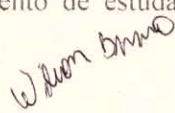 ento de estuda
Wilson Bruno